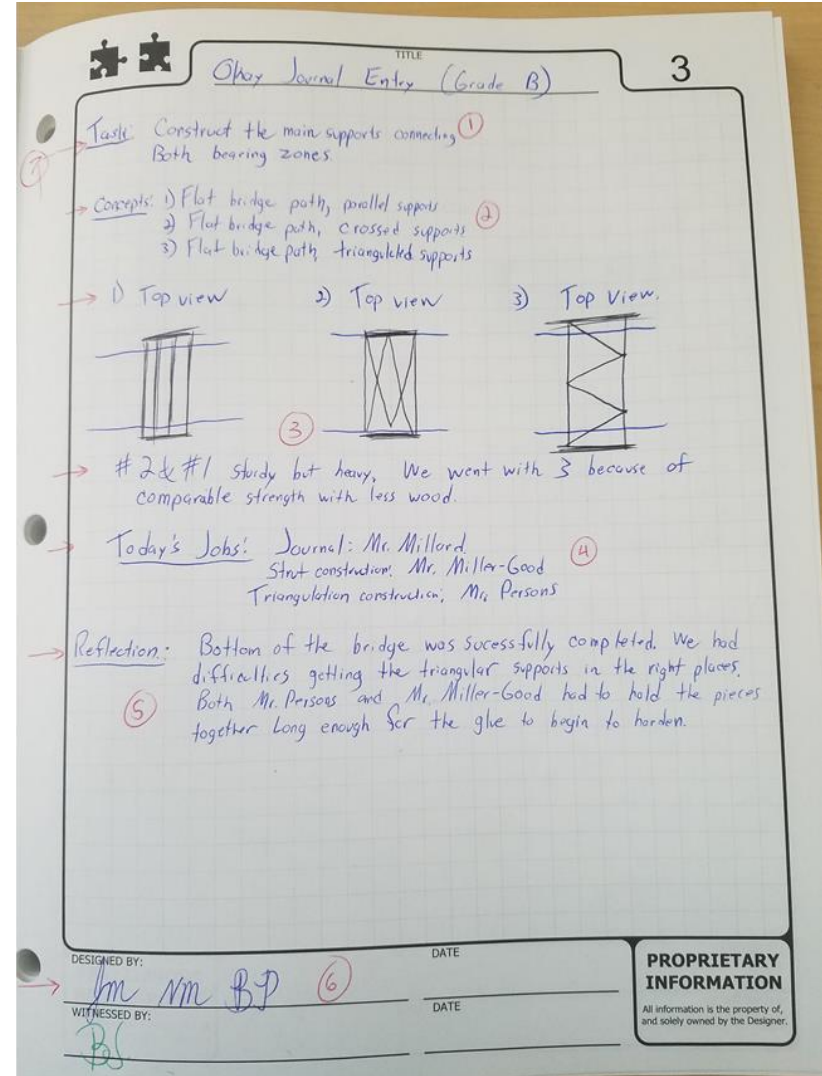 TITLE
Okay Journal Entry (Grade B)
3
Task: Construct the main supports connecting ①
Both bearing zones.
Concepts: 1) Flat bridge path, parallel supports
2) Flat bridge path, crossed supports ②
3) Flat bridge path, triangulated supports
1) Top view 2) Top view 3) Top View.
③
#2 & #1 sturdy but heavy, We went with 3 because of
comparable strength with less wood.
Today's Jobs: Journal: Mr. Millard ④
Strut construction: Mr. Miller-Good
Triangulation construction: Mr. Persons
Reflection: Bottom of the bridge was sucessfully completed. We had
difficulties getting the triangular supports in the right places.
Both Mr. Persons and Mr. Miller-Good had to hold the pieces
⑤
together long enough for the glue to begin to harden.
DESIGNED BY:
DATE
Jm Nm BP ⑥
WITNESSED BY:
DATE
BS
PROPRIETARY
INFORMATION
All information is the property of,
and solely owned by the Designer.